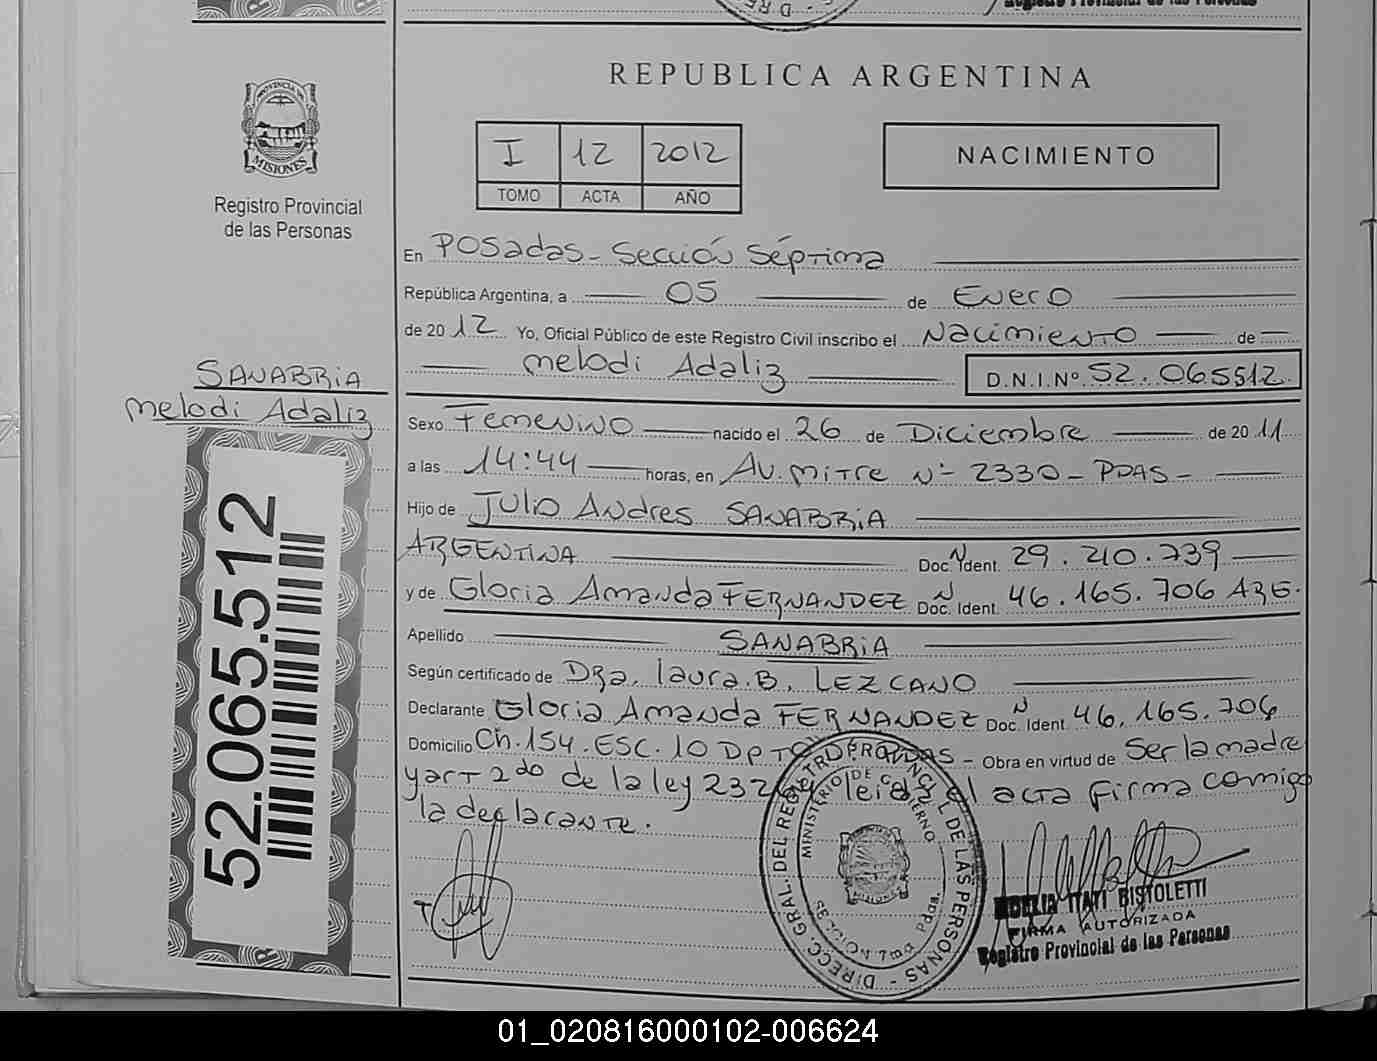 Registro Provincial de las Personas
REPUBLICA ARGENTINA
PROVINCIA DE
MISIONES
Registro Provincial
de las Personas
I 12 2012
TOMO ACTA AÑO
NACIMIENTO
En Posadas - Sección Séptima
República Argentina, a 05 de Enero
de 20 12 Yo, Oficial Público de este Registro Civil inscribo el Nacimiento de
melodi Adaliz D.N.I.Nº 52.065512
SANABRiA
melodi Adaliz
Sexo Femenino nacido el 26 de Diciembre de 20 11
a las 14:44 horas, en Av. mitre Nº 2330 - PDAS -
Hijo de Julio Andres SANABRiA
ARGENTINA Doc. Ident. N 29.210.739
y de Gloria Amanda FERNANDEZ Doc. Ident. N 46.165.706 ARG.
Apellido SANABRiA
Según certificado de Dra. laura.B. LEZCANO
Declarante Gloria Amanda FERNANDEZ Doc. Ident. N 46.165.706
Domicilio Ch.154.ESC.10 DPTO PDAS - Obra en virtud de Ser la madre
y art 2do de la ley leida el acta firma comigo
la declarante.
52.065.512
DIRECC. GRAL. DEL REGISTRO PROVINCIAL DE LAS PERSONAS -
MINISTERIO DE GOBIERNO
MISIONES
Pdas.
ITATI BISTOLETTI
FIRMA AUTORIZADA
Registro Provincial de las Personas
01_020816000102-006624